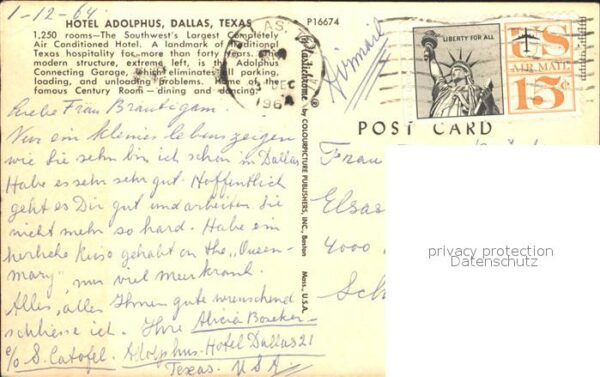 1-12-64
HOTEL ADOLPHUS, DALLAS, TEXAS
P16674
1,250 rooms—The Southwest's Largest Completely
Air Conditioned Hotel. A landmark of traditional
Texas hospitality for more than forty years. The
modern structure, extreme left, is the Adolphus
Connecting Garage, which eliminates all parking,
loading, and unloading problems. Home of the
famous Century Room—dining and dancing.
Liebe Frau Brautigam.
Nur ein kleines lebenszeigen
wie Sie sehn bin ich schon in Dallas
Habe es sehr sehr gut. Hoffentlich
geht es Dir gut und arbeiten Sie
nicht mehr so hard. Habe ein
herliche Reise gehabt on the „Queen-
mary" nur viel meerkrank.
Alles, alles Ihnen gute wunschend
schliesse ich. Ihre Alicia
c/o S. Catofel. Adolphus-Hotel Dallas 21
Texas. USA
Plastichrome ® by COLOURPICTURE PUBLISHERS, INC., Boston Mass., U.S.A.
DEC
196
Airmail
LIBERTY FOR ALL
US
AIR MAIL
15¢
POST CARD
Frau
Elsas
4000
Sch
privacy protection
Datenschutz